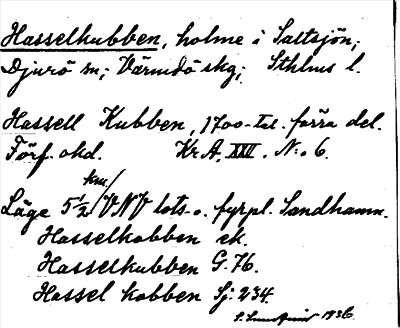 Hasselkubben, holme i Saltsjön;
Djurö sn; Värmdö skg; Sthlms l.
Hassell Kubben, 1700-tal. förra del.
Förf. okd. Kr.A. XXII. N:o 6.
Läge 5 1/2 km/ VNV lots- o. fyrpl. Sandhamn.
Hasselkobben ek.
Hasselkubben G. 76.
Hassel kobben Sj. 234.
1936